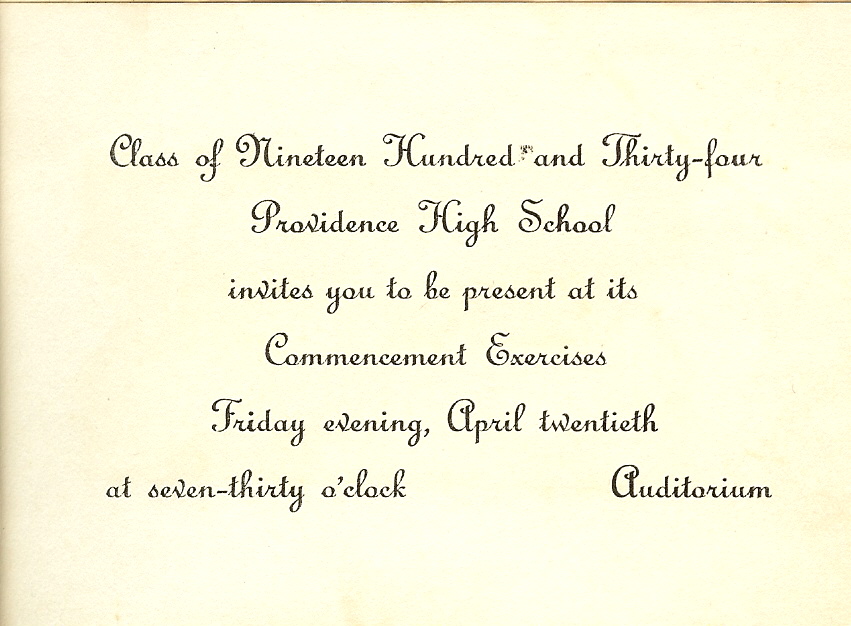 Class of Nineteen Hundred and Thirty-four
Providence High School
invites you to be present at its
Commencement Exercises
Friday evening, April twentieth
at seven-thirty o'clock Auditorium